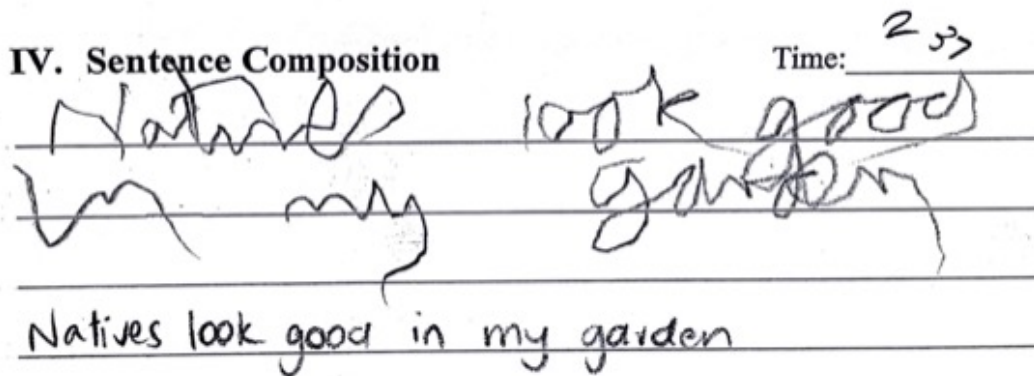 IV. Sentence Composition Time: 2 37
Natives look good
in my garden
Natives look good in my garden